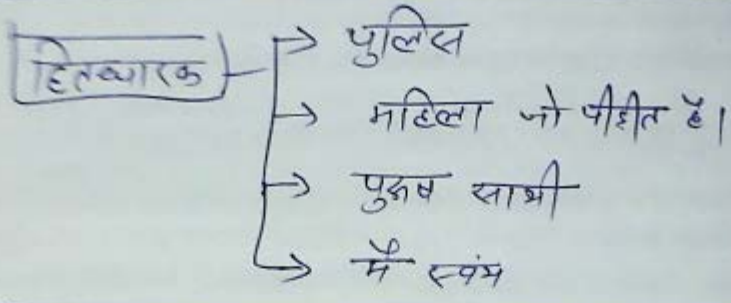 हितधारक
पुलिस
महिला जो पीड़ीत है।
पुरुष साथी
मै स्वंय